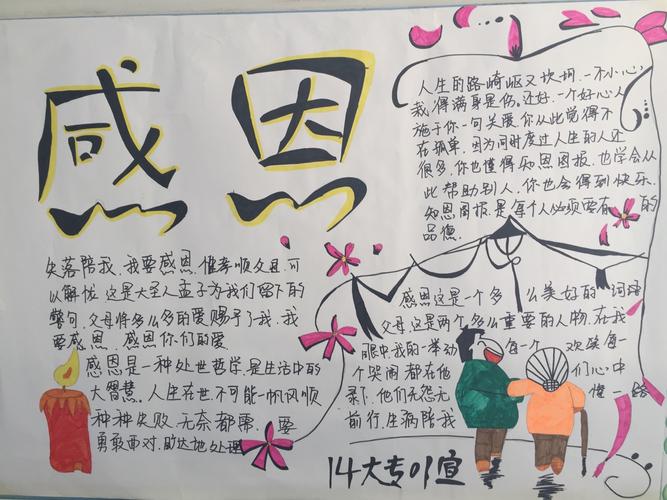 感恩
人生的路崎岖又坎坷.一不小心
栽得满身是伤,还好.一个好心人
施于你一句关爱,你从此觉得不
在孤单,因为同时度过人生的人还
很多,你也懂得知恩图报,也学会从
此帮助别人,你也会得到快乐.
知恩图报,是每个人必须要有的
品德.
失落陪我,我要感恩,惟孝顺父母,可
以解忧,这是大圣人孟子为我们留下的
警句,父母将多么多的爱赐予了我,我
要感恩,感恩你们的爱
感恩是一种处世哲学,是生活中的
大智慧,人生在世,不可能一帆风顺
种种失败,无奈都需要
勇敢面对,豁达地处理
感恩这是一个多么美好的词语
父母,这是两个多么重要的人物,在我
眼中,我的一举动每一个欢笑每一
个哭闹都在他们心中
,他们无怨无
前行,生病陪我
14大专01宣